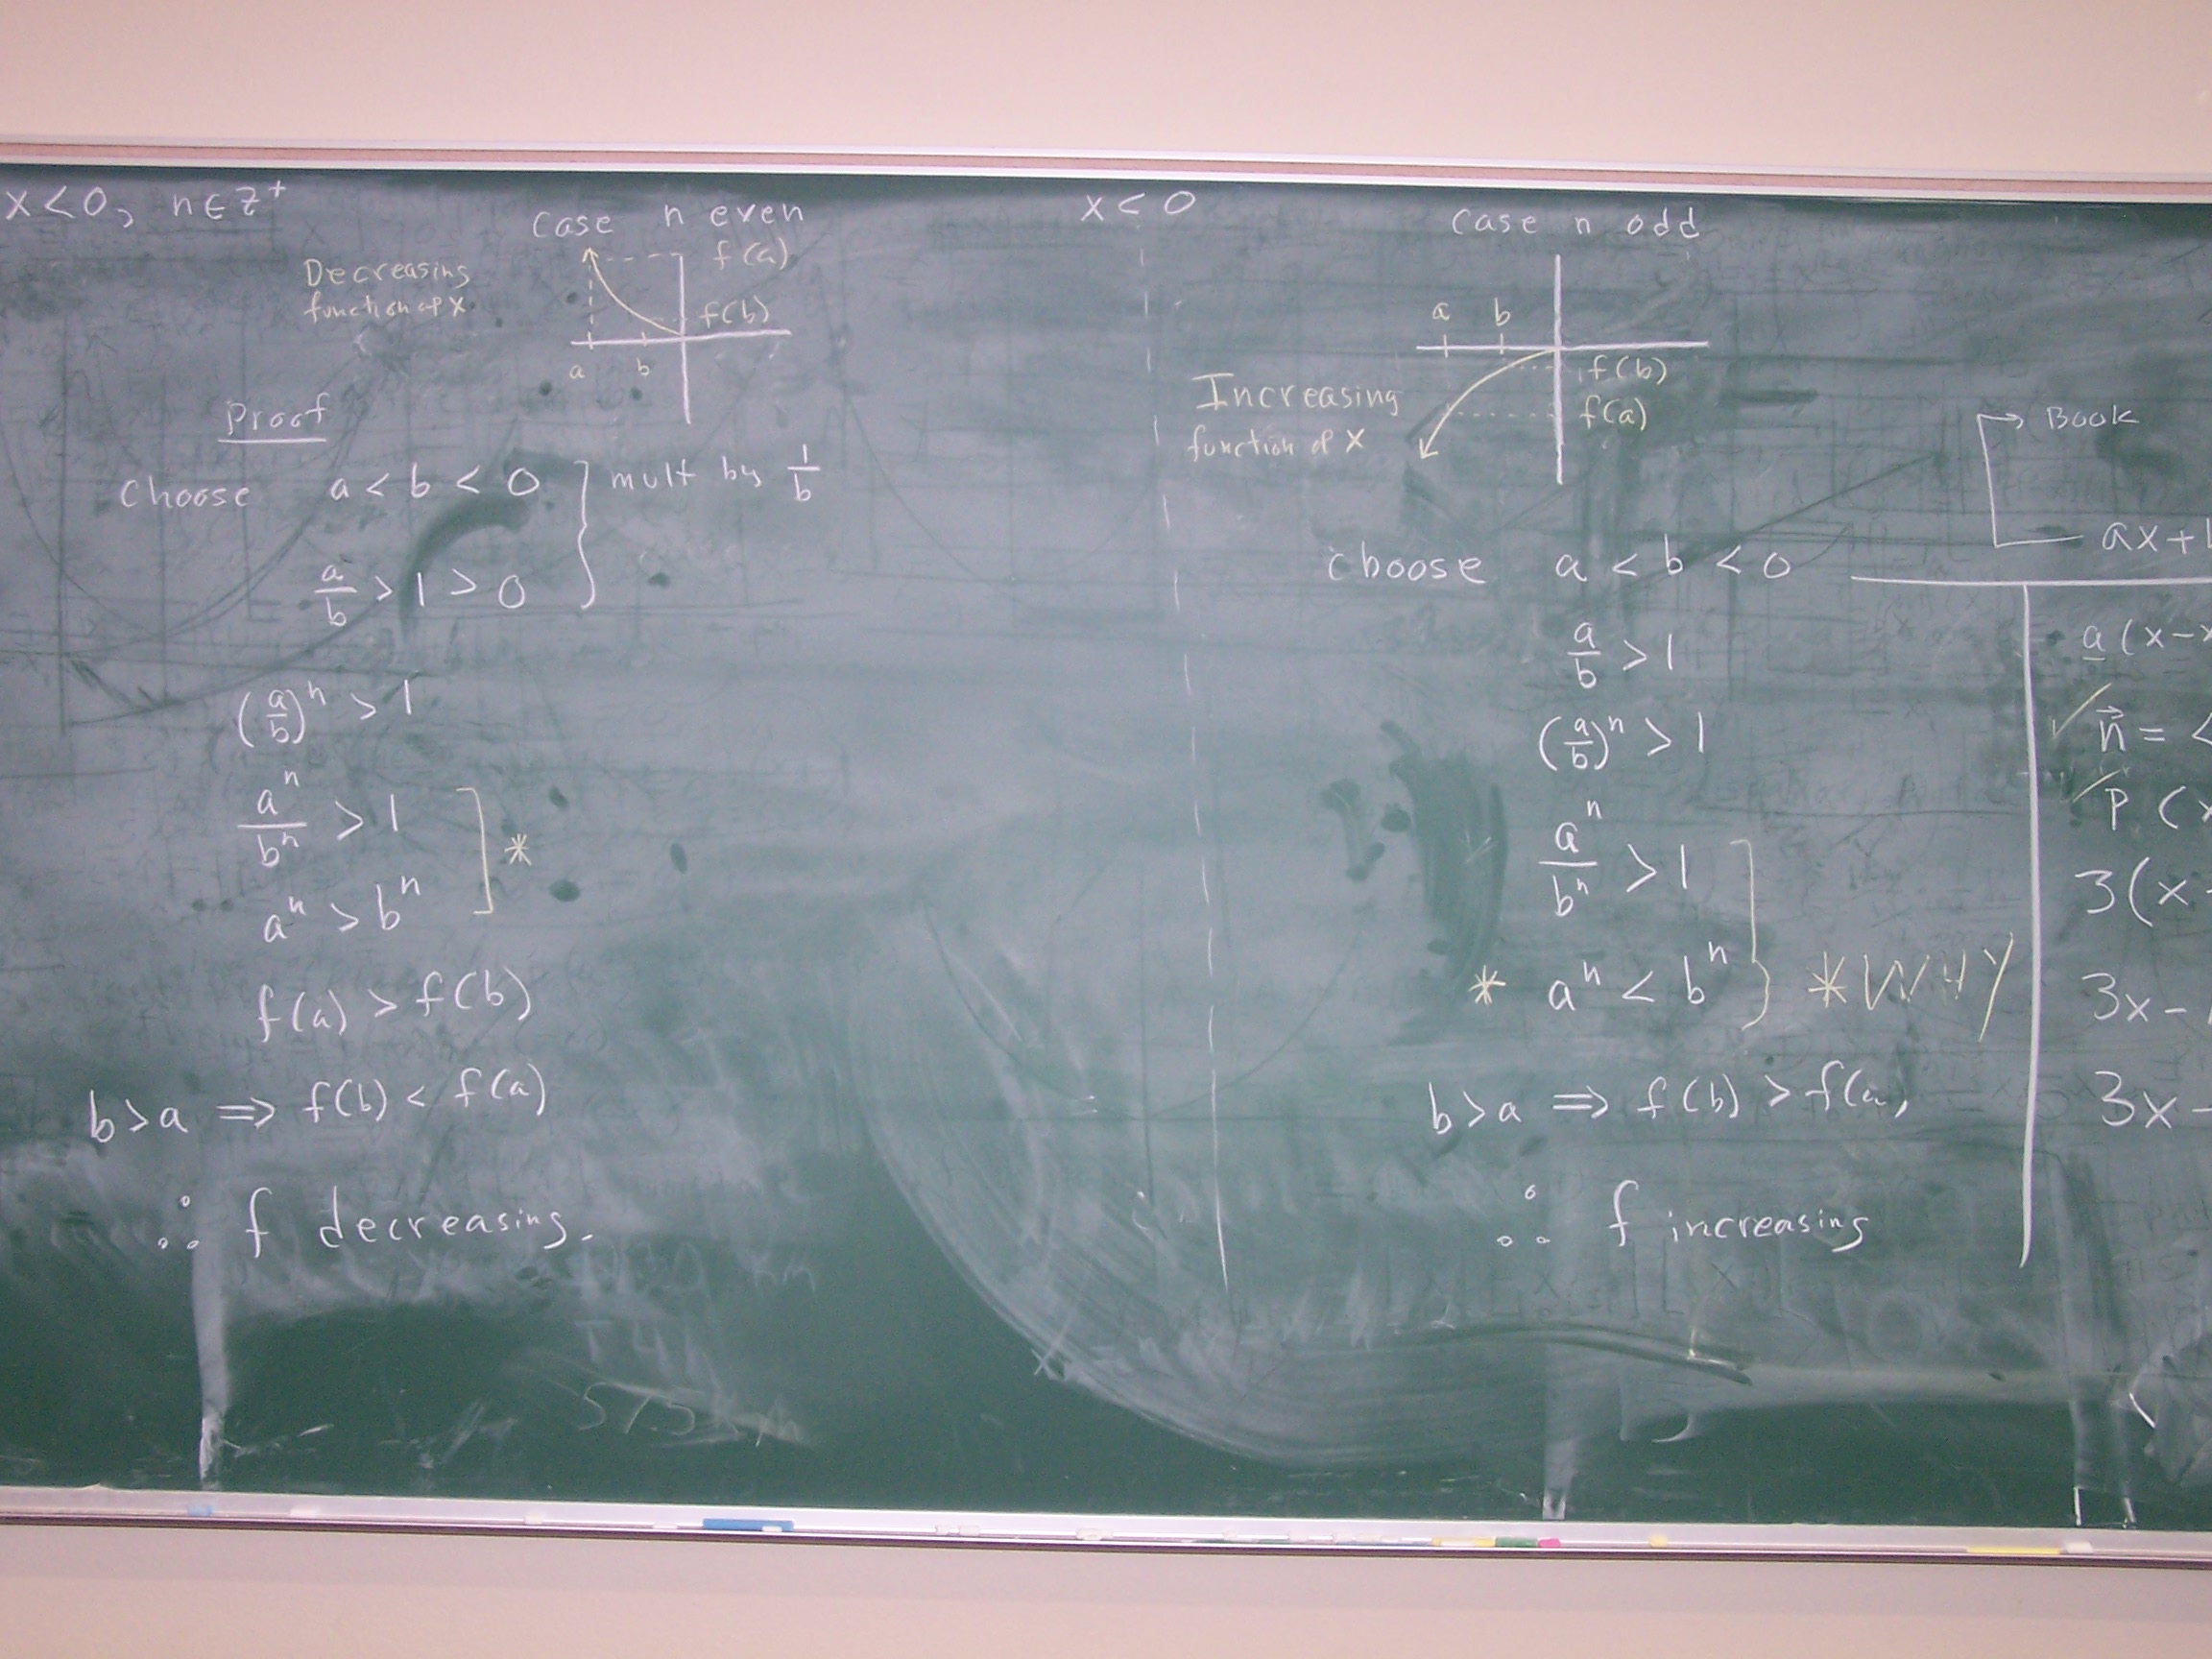 x < 0, n ∈ Z⁺
Case n even
Decreasing
function of x
f(a)
f(b)
a b
Proof
Choose a < b < 0 } mult by 1/b
a/b > 1 > 0
(a/b)ⁿ > 1
aⁿ/bⁿ > 1
] *
aⁿ > bⁿ
f(a) > f(b)
b > a ⇒ f(b) < f(a)
∴ f decreasing.
x < 0
Case n odd
a b
Increasing
function of x
f(b)
f(a)
Choose a < b < 0
a/b > 1
(a/b)ⁿ > 1
aⁿ/bⁿ > 1
* aⁿ < bⁿ } * WHY
b > a ⇒ f(b) > f(a)
∴ f increasing
→ Book
ax+
a(x-x
✓ n⃗ = <
✓ P (x
3(x-
3x-
3x-